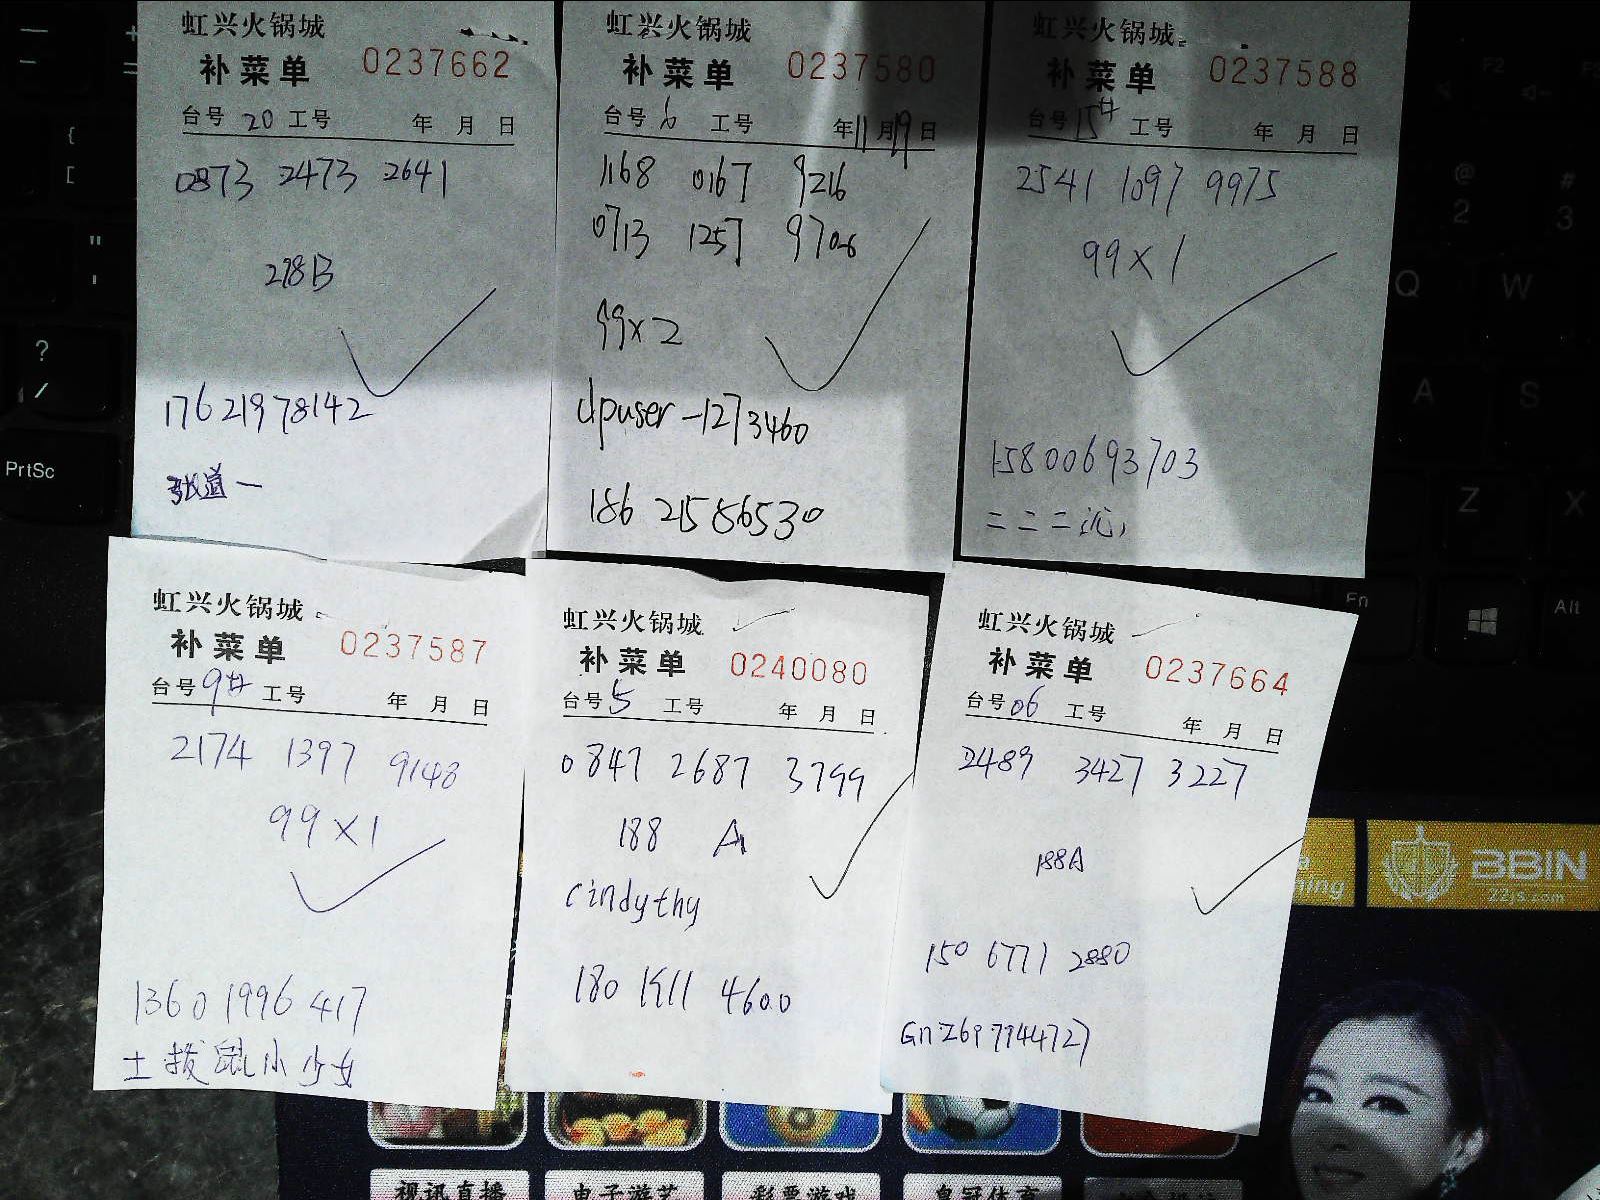 虹兴火锅城
补菜单 0237662
台号 20 工号 年 月 日
0873 2473 2641
218B
17621978142
张道一
虹兴火锅城
补菜单 0237580
台号 6 工号 年11月19日
1168 0167 9216
0713 1257 9706
99×2
dpuser-1273460
186 21586530
虹兴火锅城
补菜单 0237588
台号 15# 工号 年 月 日
2541 1097 9975
99×1
15800693703
二二二沅
虹兴火锅城
补菜单 0237587
台号 9# 工号 年 月 日
2174 1397 9148
99×1
1360 1996 417
土拨鼠小少女
虹兴火锅城
补菜单 0240080
台号 5 工号 年 月 日
0847 2687 3799
188 A
cindythy
180 1911 4600
虹兴火锅城
补菜单 0237664
台号 06 工号 年 月 日
2489 3427 3227
188A
150 6771 2880
Gn2697944727
BBIN
22js.com
视讯直播 电子游艺 彩票游戏 皇冠体育
PrtSc
Q W
A S
Z X
Fn Alt
@ 2
# 3
F2